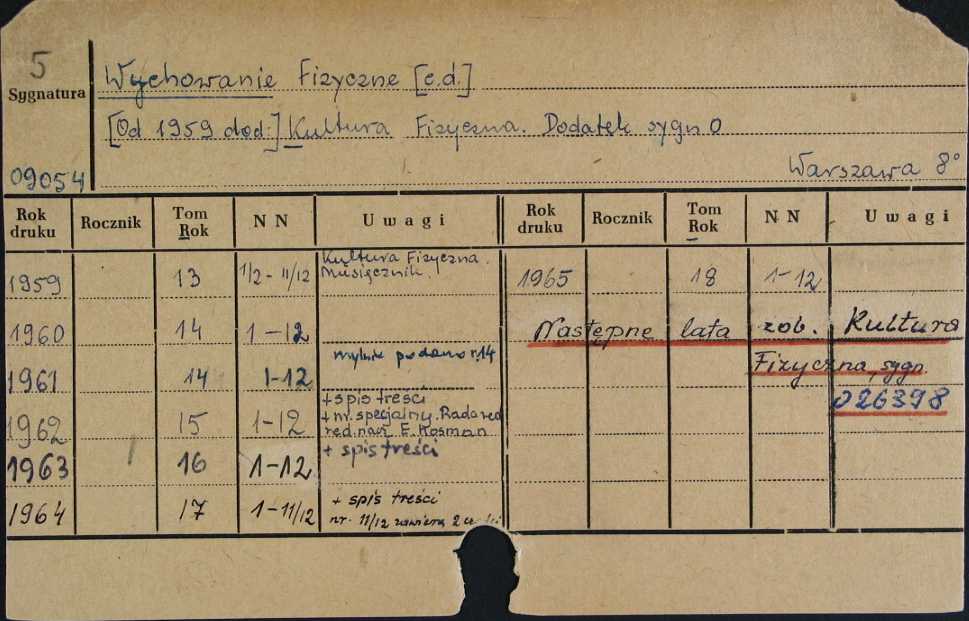 5
Sygnatura
Wychowanie Fizyczne [c.d.]
[Od 1959 dod:] Kultura Fizyczna. Dodatek sygn 0
09054
Warszawa 8°
Rok druku Rocznik Tom Rok N N Uwagi Rok druku Rocznik Tom Rok N N Uwagi
1959 13 1/2-11/12 Kultura Fizyczna. Miesięcznik. 1965 18 1-12
1960 14 1-12 Następne lata zob. Kultura
Fizyczna, sygn.
026398
1961 14 1-12 mylnie podano r.14
1962 15 1-12 + spis treści
+ nr. specjalny. Rada red
red. nacz E. Kosman
1963 16 1-12 + spis treści
1964 17 1-11/12 + spis treści
nr. 11/12 zawiera 2